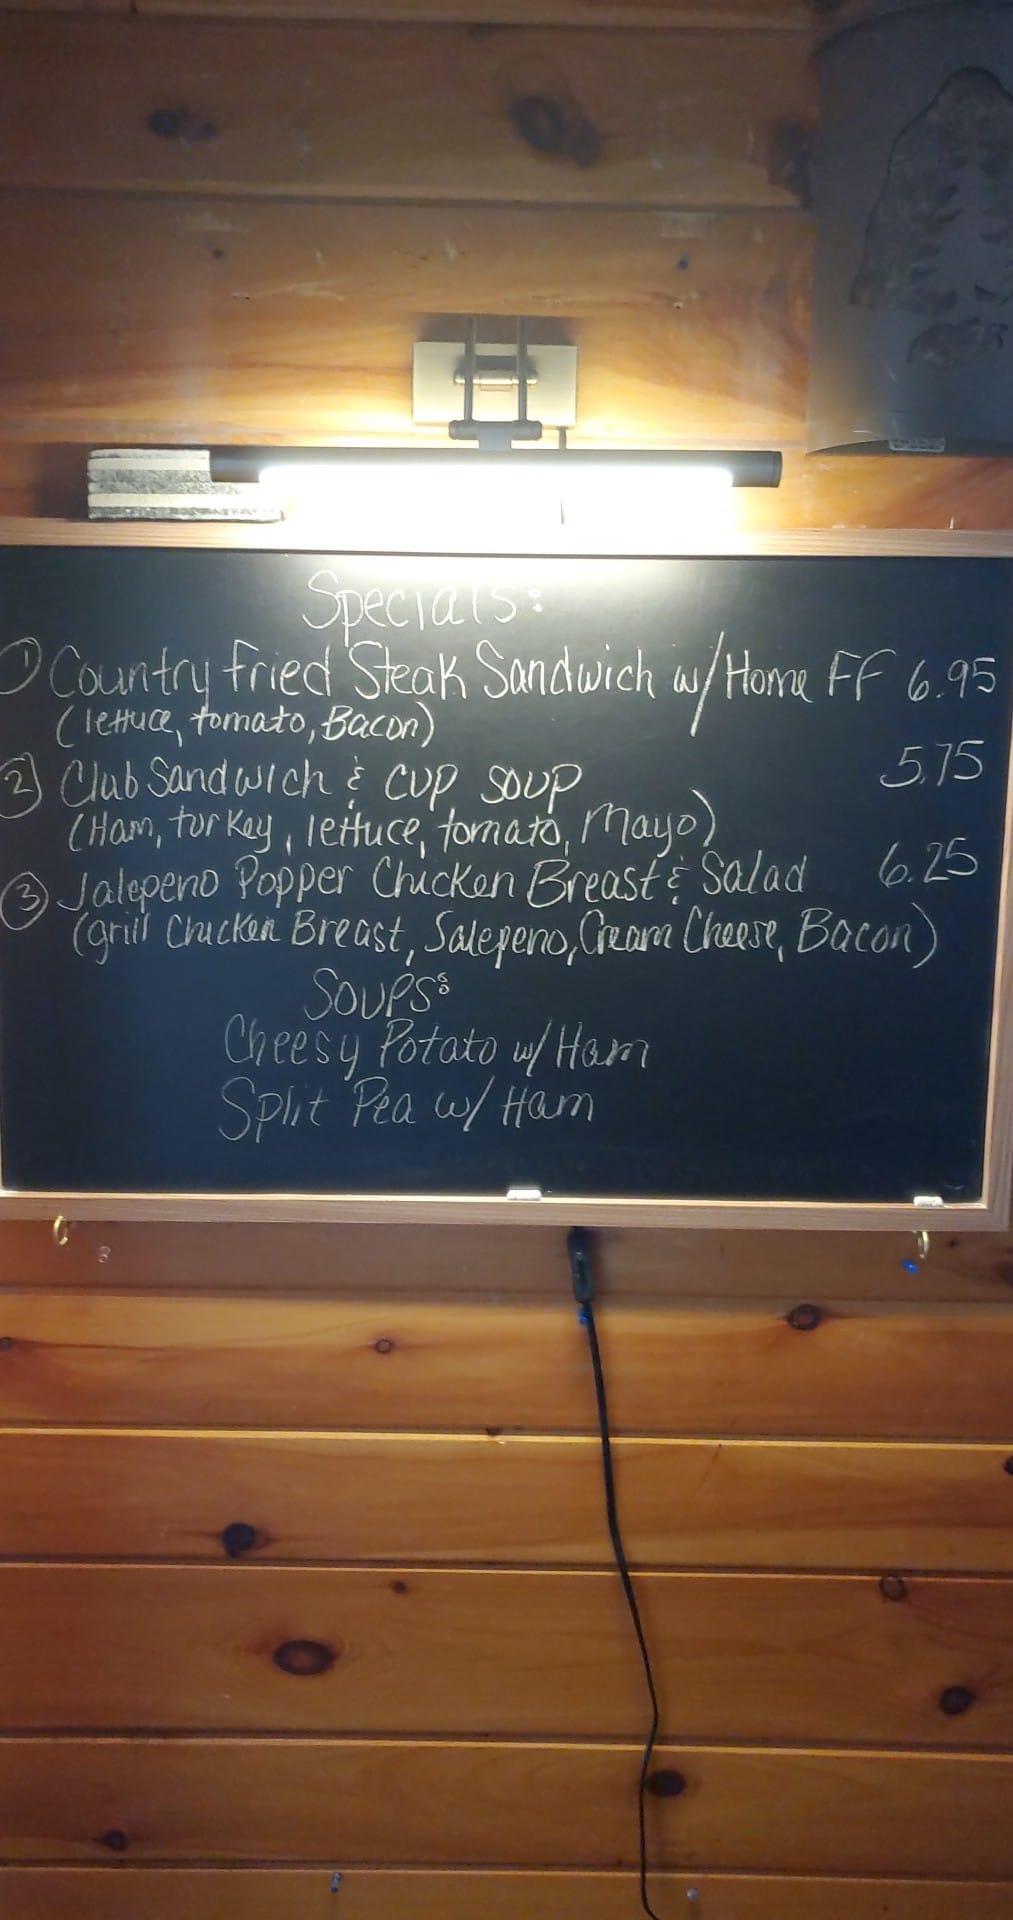 Specials:
① Country fried Steak Sandwich w/Home FF 6.95
(lettuce, tomato, Bacon)
② Club Sandwich & cup soup 5.75
(Ham, turkey, lettuce, tomato, Mayo)
③ Jalepeno Popper Chicken Breast & Salad 6.25
(grill Chicken Breast, Jalepeno, Cream Cheese, Bacon)
Soups:
Cheesy Potato w/Ham
Split Pea w/ Ham